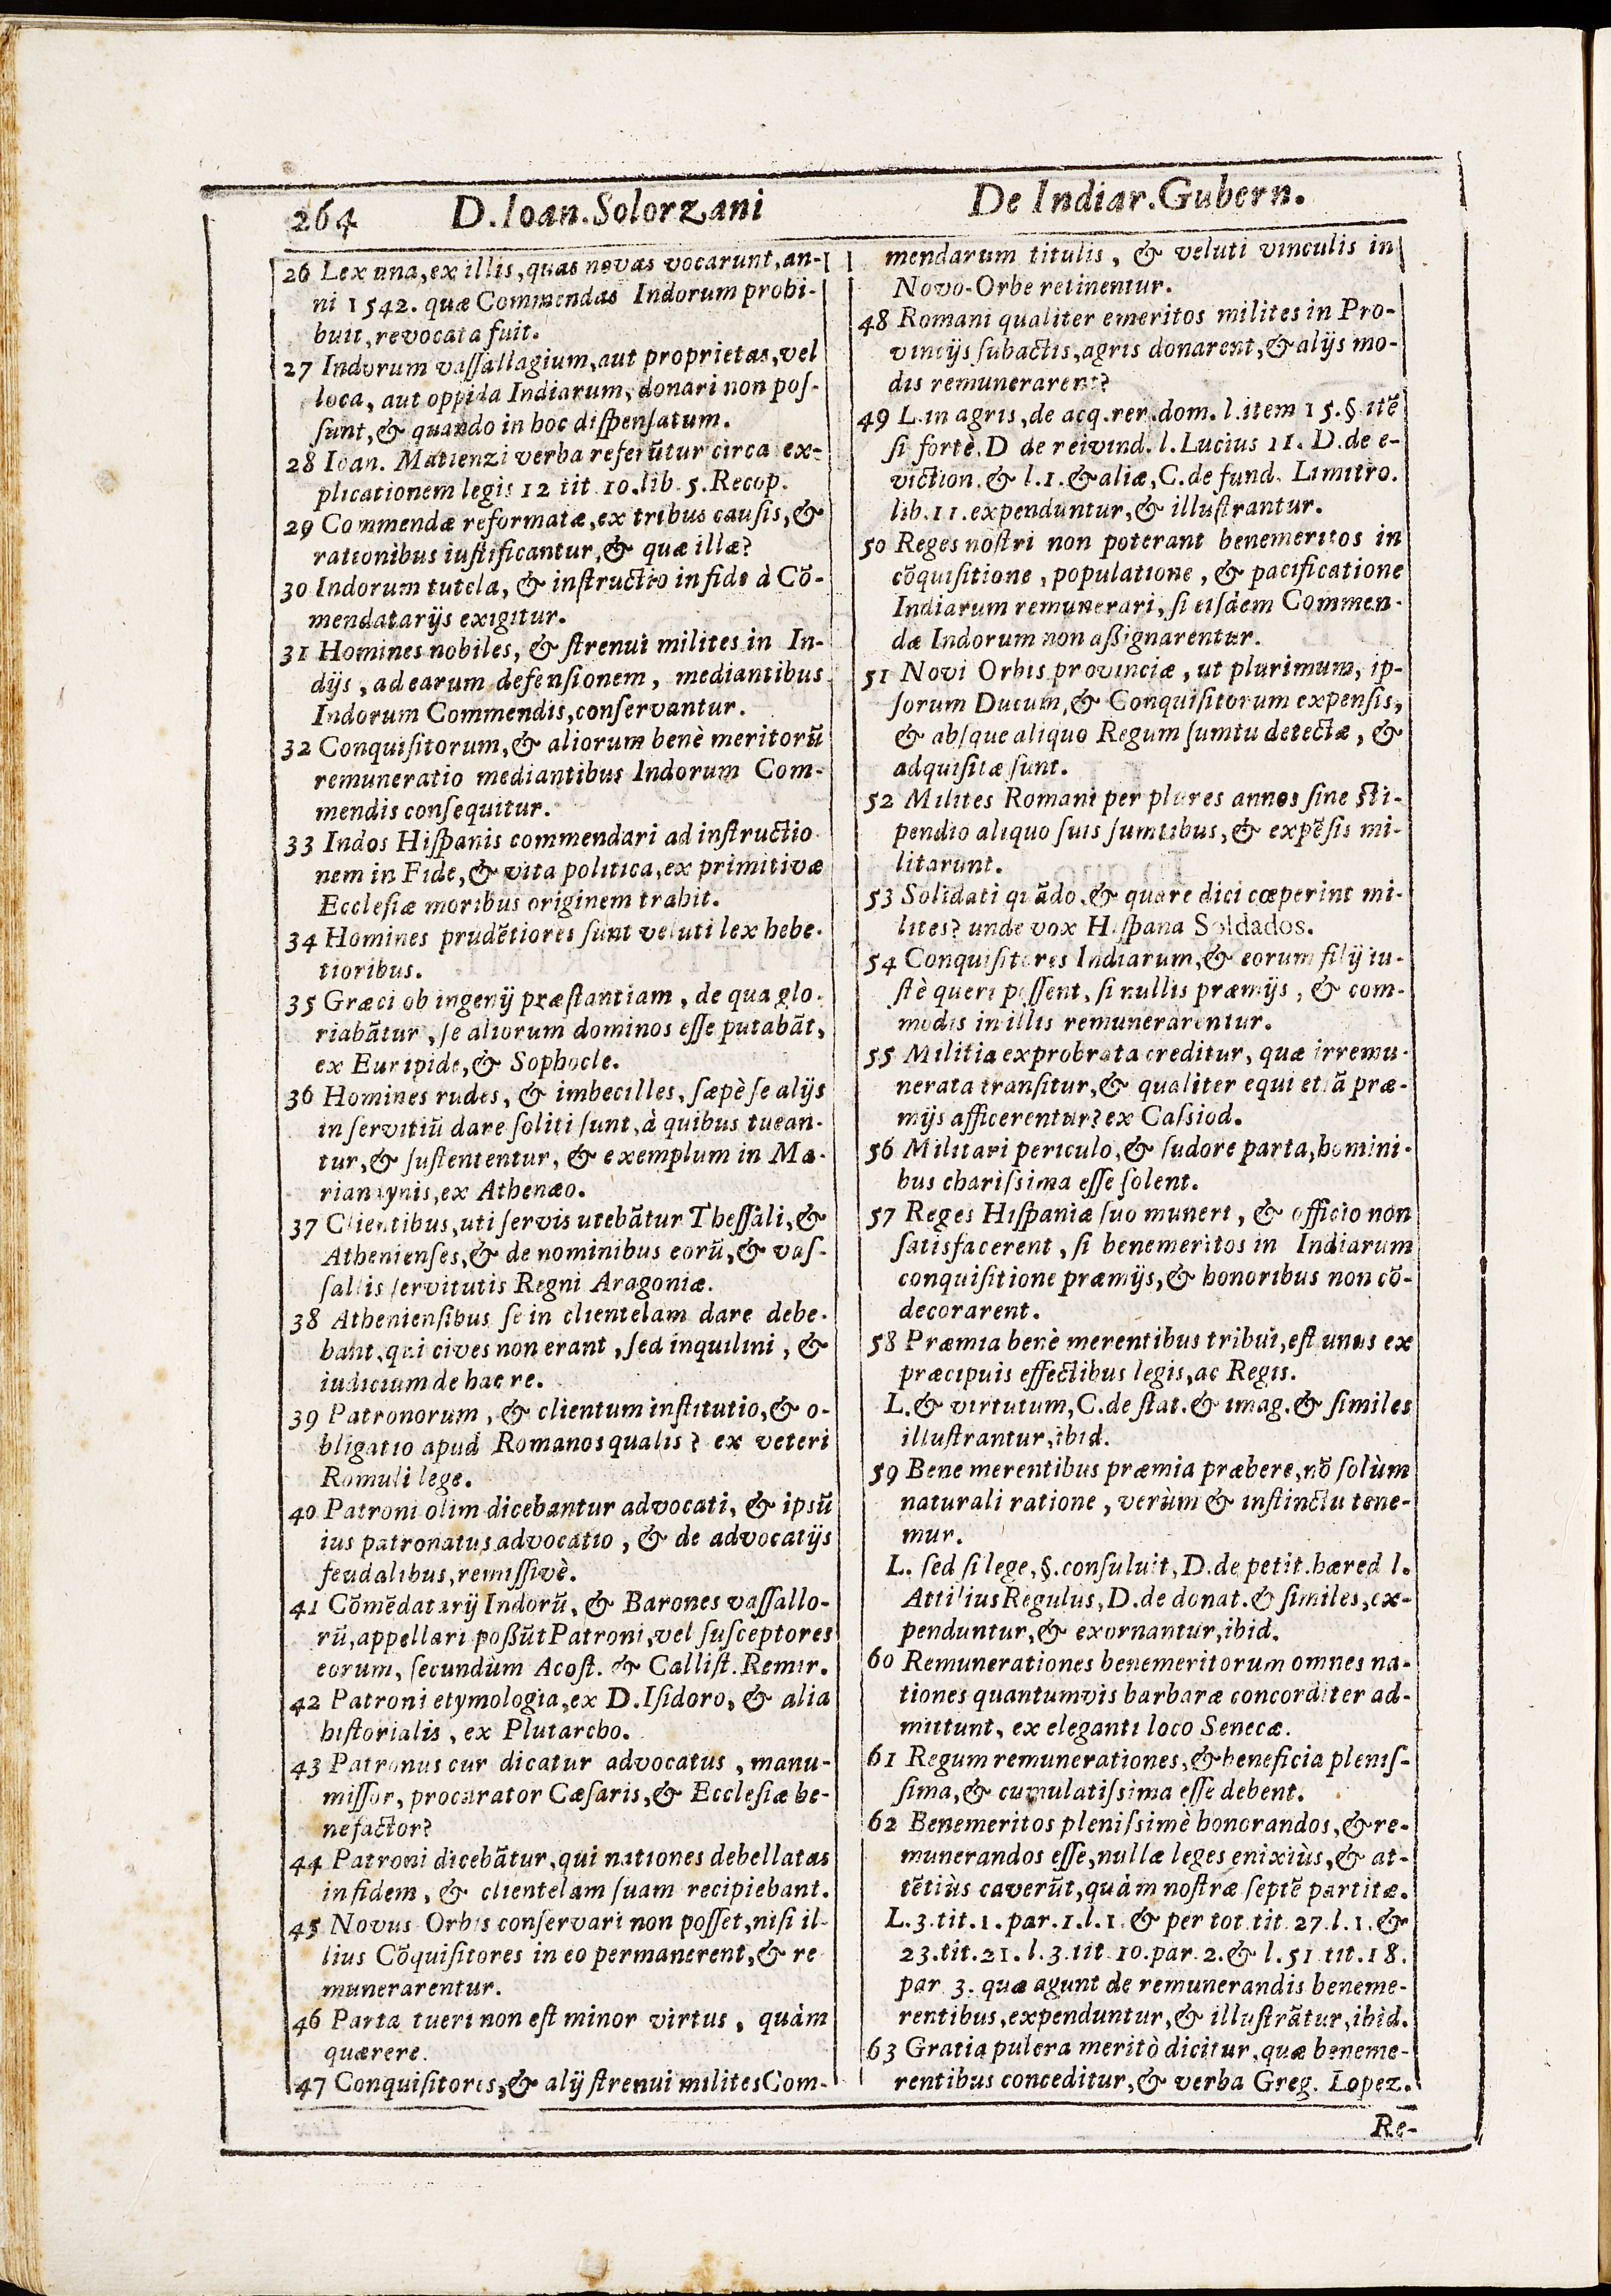 264 D. Ioan. Solorzani De Indiar. Gubern.
26 Lex una, ex illis, quas novas vocarunt, an-
ni 1542. quæ Commendas Indorum prohi-
buit, revocata fuit.
27 Indorum vaſſallagium, aut proprietas, vel
loca, aut oppida Indiarum, donari non poſ-
ſunt, & quando in hoc diſpenſatum.
28 Ioan. Matienzi verba referūtur circa ex-
plicationem legis 12 tit. 10. lib. 5. Recop.
29 Commendæ reformatæ, ex tribus cauſis, &
rationibus iuſtificantur, & quæ illæ?
30 Indorum tutela, & inſtructio in fide à Cō-
mendatarijs exigitur.
31 Homines nobiles, & ſtrenui milites in In-
dijs, ad earum defenſionem, mediantibus
Indorum Commendis, conſervantur.
32 Conquiſitorum, & aliorum benè meritorū
remuneratio mediantibus Indorum Com-
mendis conſequitur.
33 Indos Hiſpanis commendari ad inſtructio-
nem in Fide, & vita politica, ex primitivæ
Eccleſiæ moribus originem trahit.
34 Homines prudētiores ſunt veluti lex hebe-
tioribus.
35 Græci ob ingenij præſtantiam, de qua glo-
riabātur, ſe aliorum dominos eſſe putabāt,
ex Euripide, & Sophocle.
36 Homines rudes, & imbecilles, ſæpè ſe alijs
in ſervitiū dare ſoliti ſunt, à quibus tuean-
tur, & ſuſtententur, & exemplum in Ma-
riandynis, ex Athenæo.
37 Clientibus, uti ſervis utebātur Theſſali, &
Athenienſes, & de nominibus eorū, & vaſ-
ſallis ſervitutis Regni Aragoniæ.
38 Athenienſibus ſe in clientelam dare debe-
bant, qui cives non erant, ſed inquilini, &
iudicium de hac re.
39 Patronorum, & clientum inſtitutio, & o-
bligatio apud Romanos qualis? ex veteri
Romuli lege.
40 Patroni olim dicebantur advocati, & ipsū
ius patronatus advocatio, & de advocatijs
feudalibus, remiſſivè.
41 Cōmēdatarij Indorū, & Barones vaſſallo-
rū, appellari poßūt Patroni, vel ſuſceptores
eorum, ſecundùm Acoſt. & Calliſt. Remir.
42 Patroni etymologia, ex D. Iſidoro, & alia
hiſtorialis, ex Plutarcho.
43 Patronus cur dicatur advocatus, manu-
miſſor, procurator Cæſaris, & Eccleſiæ be-
nefactor?
44 Patroni dicebātur, qui nationes debellatas
in fidem, & clientelam ſuam recipiebant.
45 Novus Orbis conſervari non poſſet, niſi il-
lius Cōquiſitores in eo permanerent, & re
munerarentur.
46 Parta tueri non eſt minor virtus, quàm
quærere.
47 Conquiſitores, & alij ſtrenui milites Com-
mendarum titulis, & veluti vinculis in
Novo-Orbe retinentur.
48 Romani qualiter emeritos milites in Pro-
vincijs ſubactis, agris donarent, & alijs mo-
dis remunerarent?
49 L. in agris, de acq. rer. dom. l. item 15. §. itē
ſi fortè. D de reivind. l. Lucius 11. D. de e-
viction. & l. 1. & aliæ, C. de fund. Limitro.
lib. 11. expenduntur, & illuſtrantur.
50 Reges noſtri non poterant benemeritos in
cōquiſitione, populatione, & pacificatione
Indiarum remunerari, ſi eiſdem Commen-
dæ Indorum non aßignarentur.
51 Novi Orbis provinciæ, ut plurimum, ip-
ſorum Ducum, & Conquiſitorum expenſis,
& abſque aliquo Regum ſumtu detectæ, &
adquiſitæ ſunt.
52 Milites Romani per plures annos ſine ſti-
pendio aliquo ſuis ſumtibus, & expēſis mi-
litarunt.
53 Solidati quādo, & quare dici cœperint mi-
lites? unde vox Hiſpana Soldados.
54 Conquiſitores Indiarum, & eorum filij iu-
ſtè queri poſſent, ſi nullis præmijs, & com-
modis in illis remunerarentur.
55 Militia exprobrata creditur, quæ irremu-
nerata tranſitur, & qualiter equi etiā præ-
mijs afficerentur? ex Caſsiod.
56 Militari periculo, & ſudore parta, homini-
bus chariſsima eſſe ſolent.
57 Reges Hiſpaniæ ſuo muneri, & officio non
ſatisfacerent, ſi benemeritos in Indiarum
conquiſitione præmijs, & honoribus non cō-
decorarent.
58 Præmia benè merentibus tribui, eſt unus ex
præcipuis effectibus legis, ac Regis.
L. & virtutum, C. de ſtat. & imag. & ſimiles
illuſtrantur, ibid.
59 Bene merentibus præmia præbere, nō ſolùm
naturali ratione, verùm & inſtinctu tene-
mur.
L. ſed ſi lege, §. conſuluit, D. de petit. hæred l.
Attilius Regulus, D. de donat. & ſimiles, ex-
penduntur, & exornantur, ibid.
60 Remunerationes benemeritorum omnes na-
tiones quantumvis barbaræ concorditer ad-
mittunt, ex eleganti loco Senecæ.
61 Regum remunerationes, & beneficia pleniſ-
ſima, & cumulatiſsima eſſe debent.
62 Benemeritos pleniſsimè honorandos, & re-
munerandos eſſe, nullæ leges enixiùs, & at-
tētiùs caverūt, quàm noſtræ ſeptē partitæ.
L. 3. tit. 1. par. 1. l. 1. & per tot. tit. 27. l. 1. &
23. tit. 21. l. 3. tit. 10. par. 2. & l. 51 tit. 18.
par 3. quæ agunt de remunerandis beneme-
rentibus, expenduntur, & illuſtrātur, ibid.
63 Gratia pulcra meritò dicitur, quæ beneme-
rentibus conceditur, & verba Greg. Lopez.
Re-